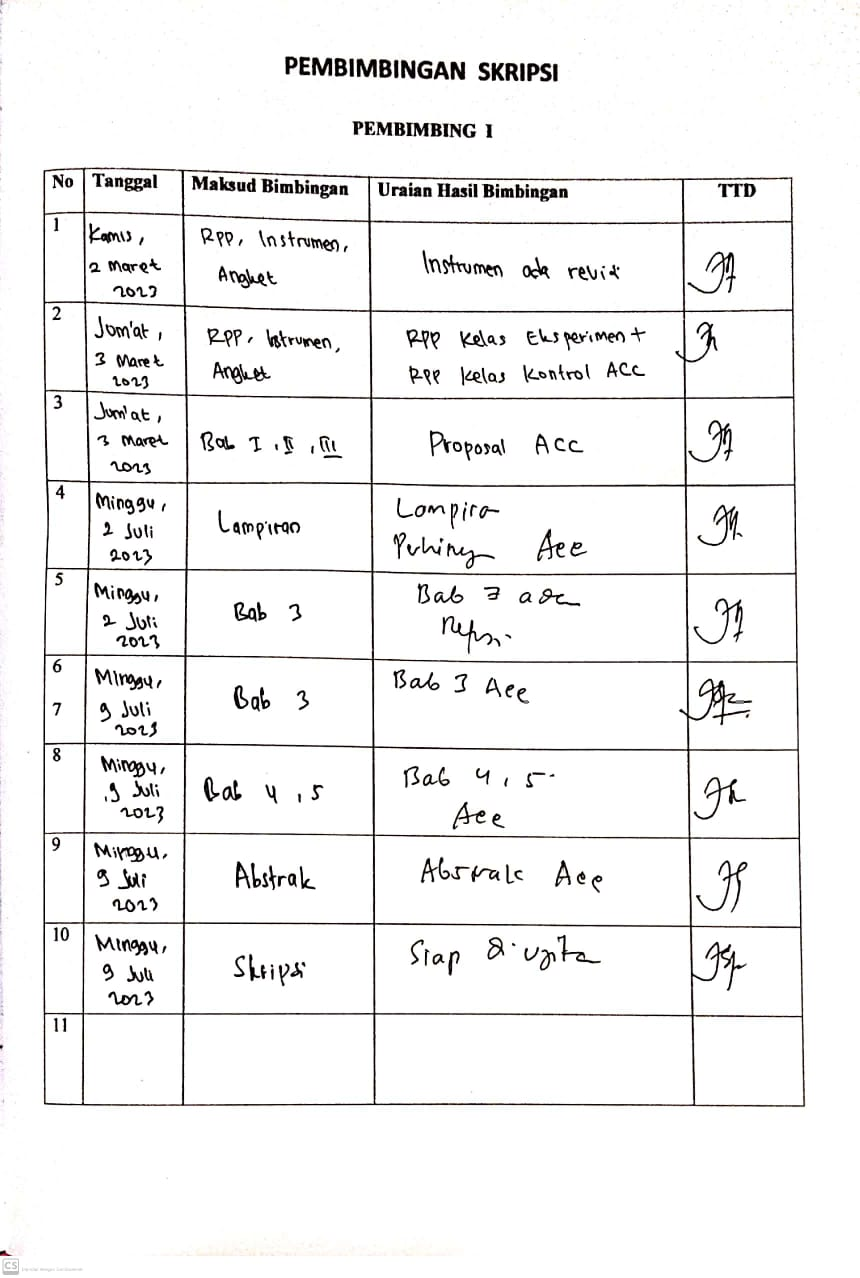 PEMBIMBINGAN SKRIPSI
PEMBIMBING I
No Tanggal Maksud Bimbingan Uraian Hasil Bimbingan TTD
1 Kamis, 2 Maret 2023 RPP, Instrumen, Angket Instrumen ada revisi
2 Jum'at, 3 Maret 2023 RPP, Intrumen, Angket RPP Kelas Eksperimen + RPP Kelas Kontrol ACC
3 Jum'at, 3 Maret 2023 Bab I, II, III Proposal ACC
4 Minggu, 2 Juli 2023 Lampiran Acc
5 Minggu, 2 Juli 2023 Bab 3 Bab 3 ada
6 7 Minggu, 9 Juli 2023 Bab 3 Bab 3 Acc
8 Minggu, 9 Juli 2023 Bab 4, 5 Bab 4, 5. Acc
9 Minggu, 9 Juli 2023 Abstrak Abstrak Acc
10 Minggu, 9 Juli 2023 Skripsi Siap
11
CS